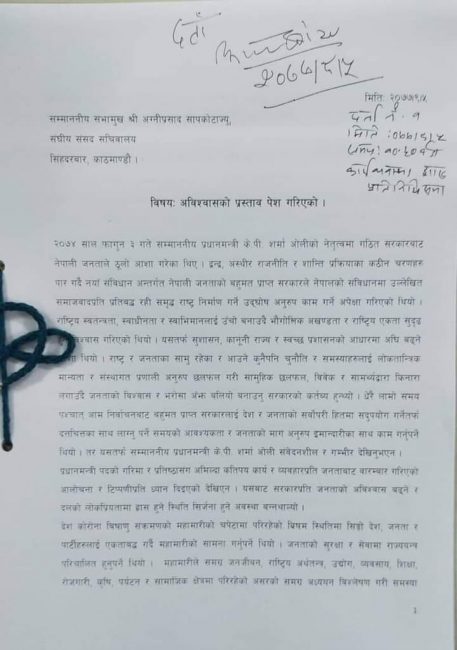 दर्ता
२०७७/९/५
मिति: २०७७।९।५
सम्माननीय सभामुख श्री अग्निप्रसाद सापकोटाज्यू,
दर्ता नं. १
संघीय संसद सचिवालय
मिति: ०७७/९/५
सिंहदरबार, काठमाण्डौ ।
विषय: अविश्वासको प्रस्ताव पेश गरिएको ।
२०७४ साल फागुन ३ गते सम्माननीय प्रधानमन्त्री के.पी. शर्मा ओलीको नेतृत्वमा गठित सरकारबाट
नेपाली जनताले ठुलो आशा गरेका थिए । द्वन्द्व, अस्थीर राजनीति र शान्ति प्रक्रियाका कठीन चरणहरु
पार गर्दै नयाँ संविधान अन्तर्गत नेपाली जनताको बहुमत प्राप्त सरकारले नेपालको संविधानमा उल्लेखित
समाजवादप्रति प्रतिबद्ध रही समृद्ध राष्ट्र निर्माण गर्ने उद्घोष अनुरुप काम गर्ने अपेक्षा गरिएको थियो ।
राष्ट्रिय स्वतन्त्रता, स्वाधीनता र स्वाभिमानलाई उँचो बनाउदै भौगोमिक अखण्डता र राष्ट्रिय एकता सुदृढ
विश्वास गरिएको थियो । यसतर्फ सुशासन, कानूनी राज्य र स्वच्छ प्रशासनको आधारमा अघि बढ्ने
थियो । राष्ट्र र जनताका सामु रहेका र आउने कुनैपनि चुनौति र समस्याहरुलाई लोकतान्त्रिक
मान्यता र संस्थागत प्रणाली अनुरुप छलफल गरी सामुहिक छलफल, विवेक र सामर्थ्यद्वारा किनारा
लगाउँदै जनताको विश्वास र भरोसा अझ बलियो बनाउनु सरकारको कर्तव्य हुन्थ्यो । धेरै लामो समय
पश्चात् आम निर्वाचनबाट बहुमत प्राप्त सरकारलाई देश र जनताको सर्वोपरी हितमा सदुपयोग गर्नेतर्फ
दत्तचित्तका साथ लाग्नु पर्ने समयको आवश्यकता र जनताको माग अनुरुप इमान्दारीका साथ काम गर्नुपर्ने
थियो । तर यसतर्फ सम्माननीय प्रधानमन्त्री के.पी. शर्मा ओली संवेदनशील र गम्भीर देखिनुभएन ।
प्रधानमन्त्री पदको गरिमा र प्रतिष्ठासंग अमिल्दा कतिपय कार्य र व्यवहारप्रति जनताबाट बारम्बार गरिएको
आलोचना र टिप्पणीप्रति ध्यान दिइएको देखिएन । यसबाट सरकारप्रति जनताको अविश्वास बढ्ने र
दलको लोकप्रियतामा ह्रास हुने स्थिति सिर्जना हुने अवस्था बन्नथाल्यो ।
देश कोरोना विषाणु संक्रमणको महामारीको चपेटामा परिरहेको विषम स्थितिमा सिङ्गो देश, जनता र
पार्टीहरुलाई एकताबद्ध गर्दै महामारीको सामना गर्नुपर्ने थियो । जनताको सुरक्षा र सेवामा राज्ययन्त्र
परिचालित हुनुपर्ने थियो । महामारीले समग्र जनजीवन, राष्ट्रिय अर्थतन्त्र, उद्योग, व्यवसाय, शिक्षा,
रोजगारी, कृषि, पर्यटन र सामाजिक क्षेत्रमा परिरहेको असरको समग्र अध्ययन विश्लेषण गरी समस्या
1